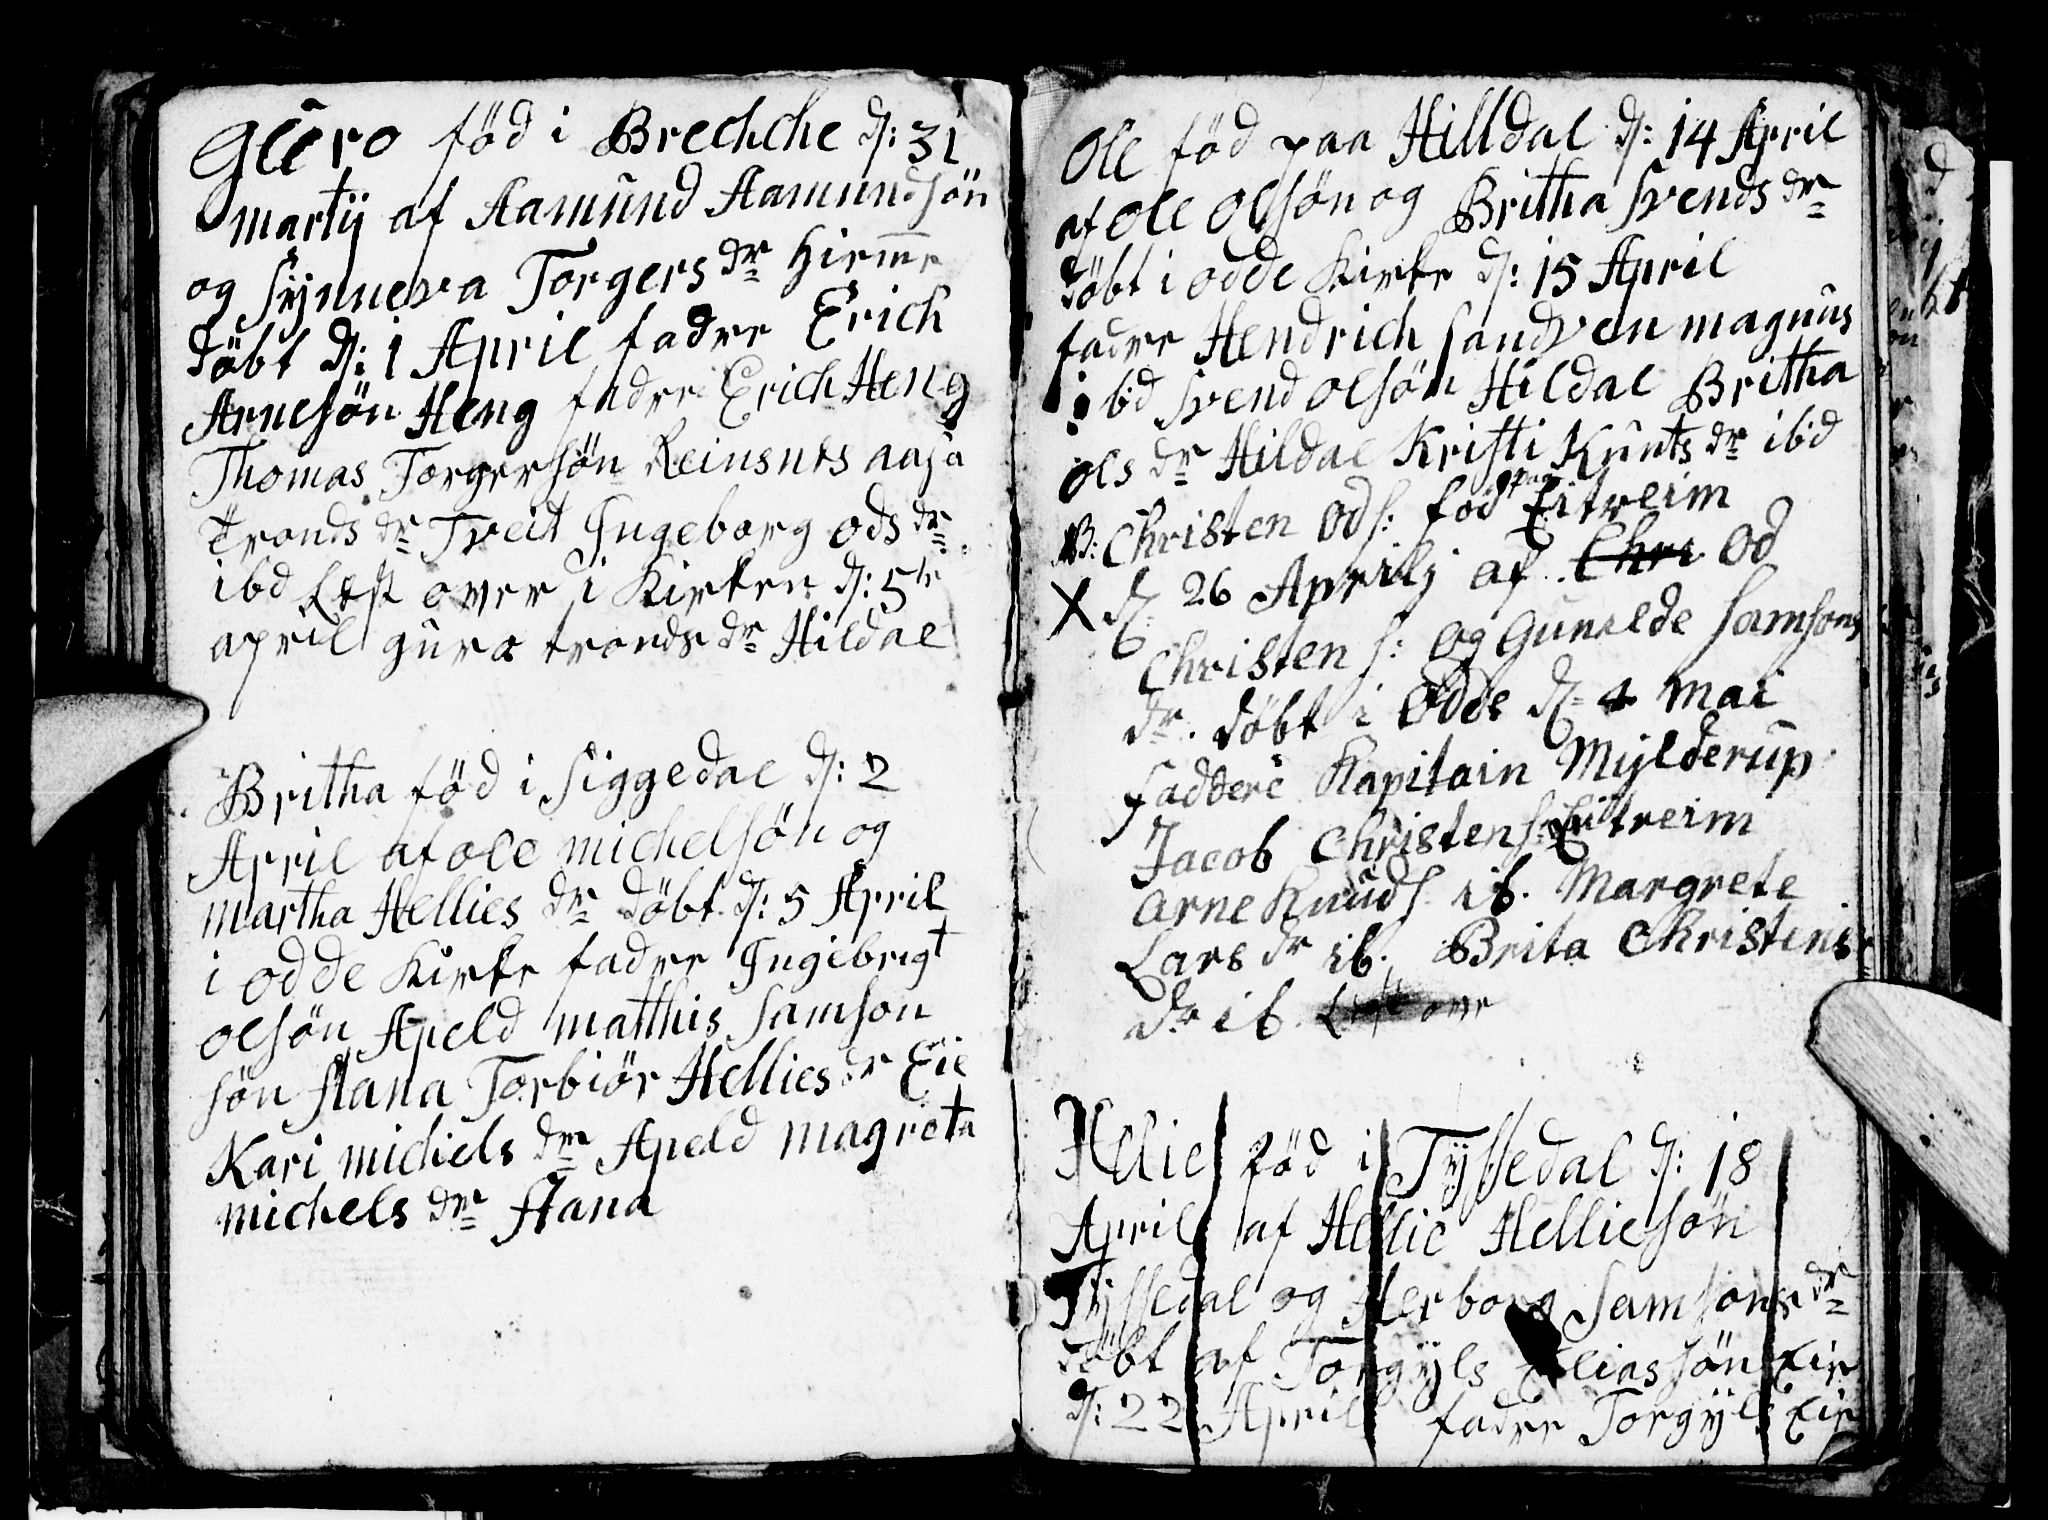 Guro fød i Brechche d: 31
martij af Aamund Aamundsøn
og Synneva Torgers dr hieme
døbt d: 1 April fadre Erich
Arnesøn Heng fadre Erich Heng
Thomas Torgersøn Reinsnes aasa
tronds dr Tveit Ingeborg ods dr
ibd Lest over i Kirken d: 5te
april gura tronds dr Hildal
Britha fød i Siggedal d: 2
April af ole michelsøn og
martha Hellies dr døbt d: 5 April
i odde Kirke fadre Ingebrigt
olsøn Apeld matthis Samson
søn flana Torbiør Hellies dr Eie
Kari michels dr Apeld magreta
michels dr flana
Ole fød paa Hilldal d: 14 April
af ole olsøn og Britha Svends dr
døbt i odde Kirke d: 15 April
fadre Hendrich Sandven magnus
ibd Svend olsøn Hildal Britha
ols dr Hildal Kristi Knuts dr ibd
NB: Christen Ods: fød paa Eitreim
X d. 26 Aprilj af Chri Od
Christen s: og Gunilde Samsons
dr. døbt i Odde d. 4 Mai
faddere Kapitain Mylderup
Jacob Christens: Eitreim
Arne Knuds. ib. Margrete
Lars dr ib. Brita Christens
dr ib. Lest over
Helie fød i Tyssedal d: 18
April af Hellie Helliesøn
Tyssedal og Herborg Samsons dr
døbt af Torgyls Eliassøn Eie
d: 22 April fadre Torgyls Eie